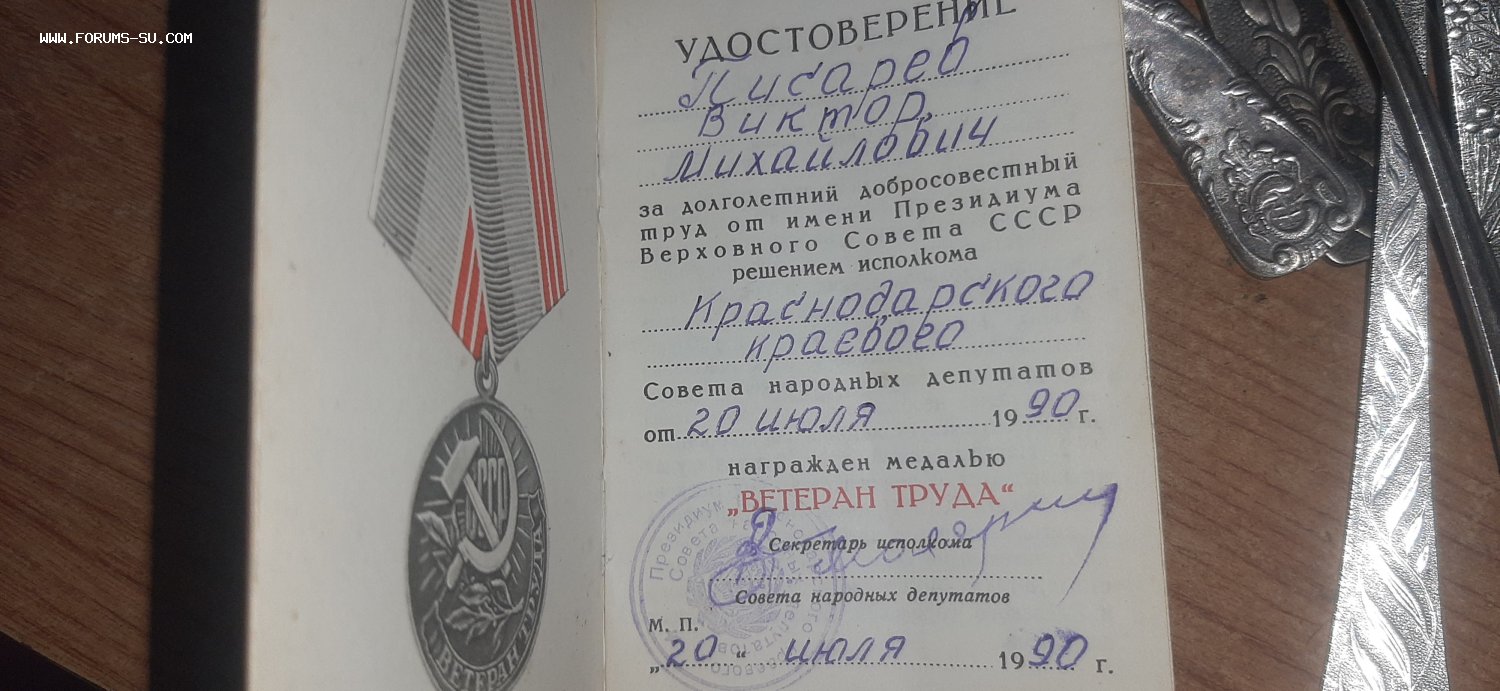 WWW.FORUMS-SU.COM
СССР
ВЕТЕРАН ТРУДА
УДОСТОВЕРЕНИЕ
Писарев
Виктор
Михайлович
за долголетний добросовестный
труд от имени Президиума
Верховного Совета СССР
решением исполкома
Краснодарского
краевого
Совета народных депутатов
от 20 июля 1990 г.
награжден медалью
„ВЕТЕРАН ТРУДА“
Секретарь исполкома
Совета народных депутатов
М. П.
„20“ июля 1990 г.